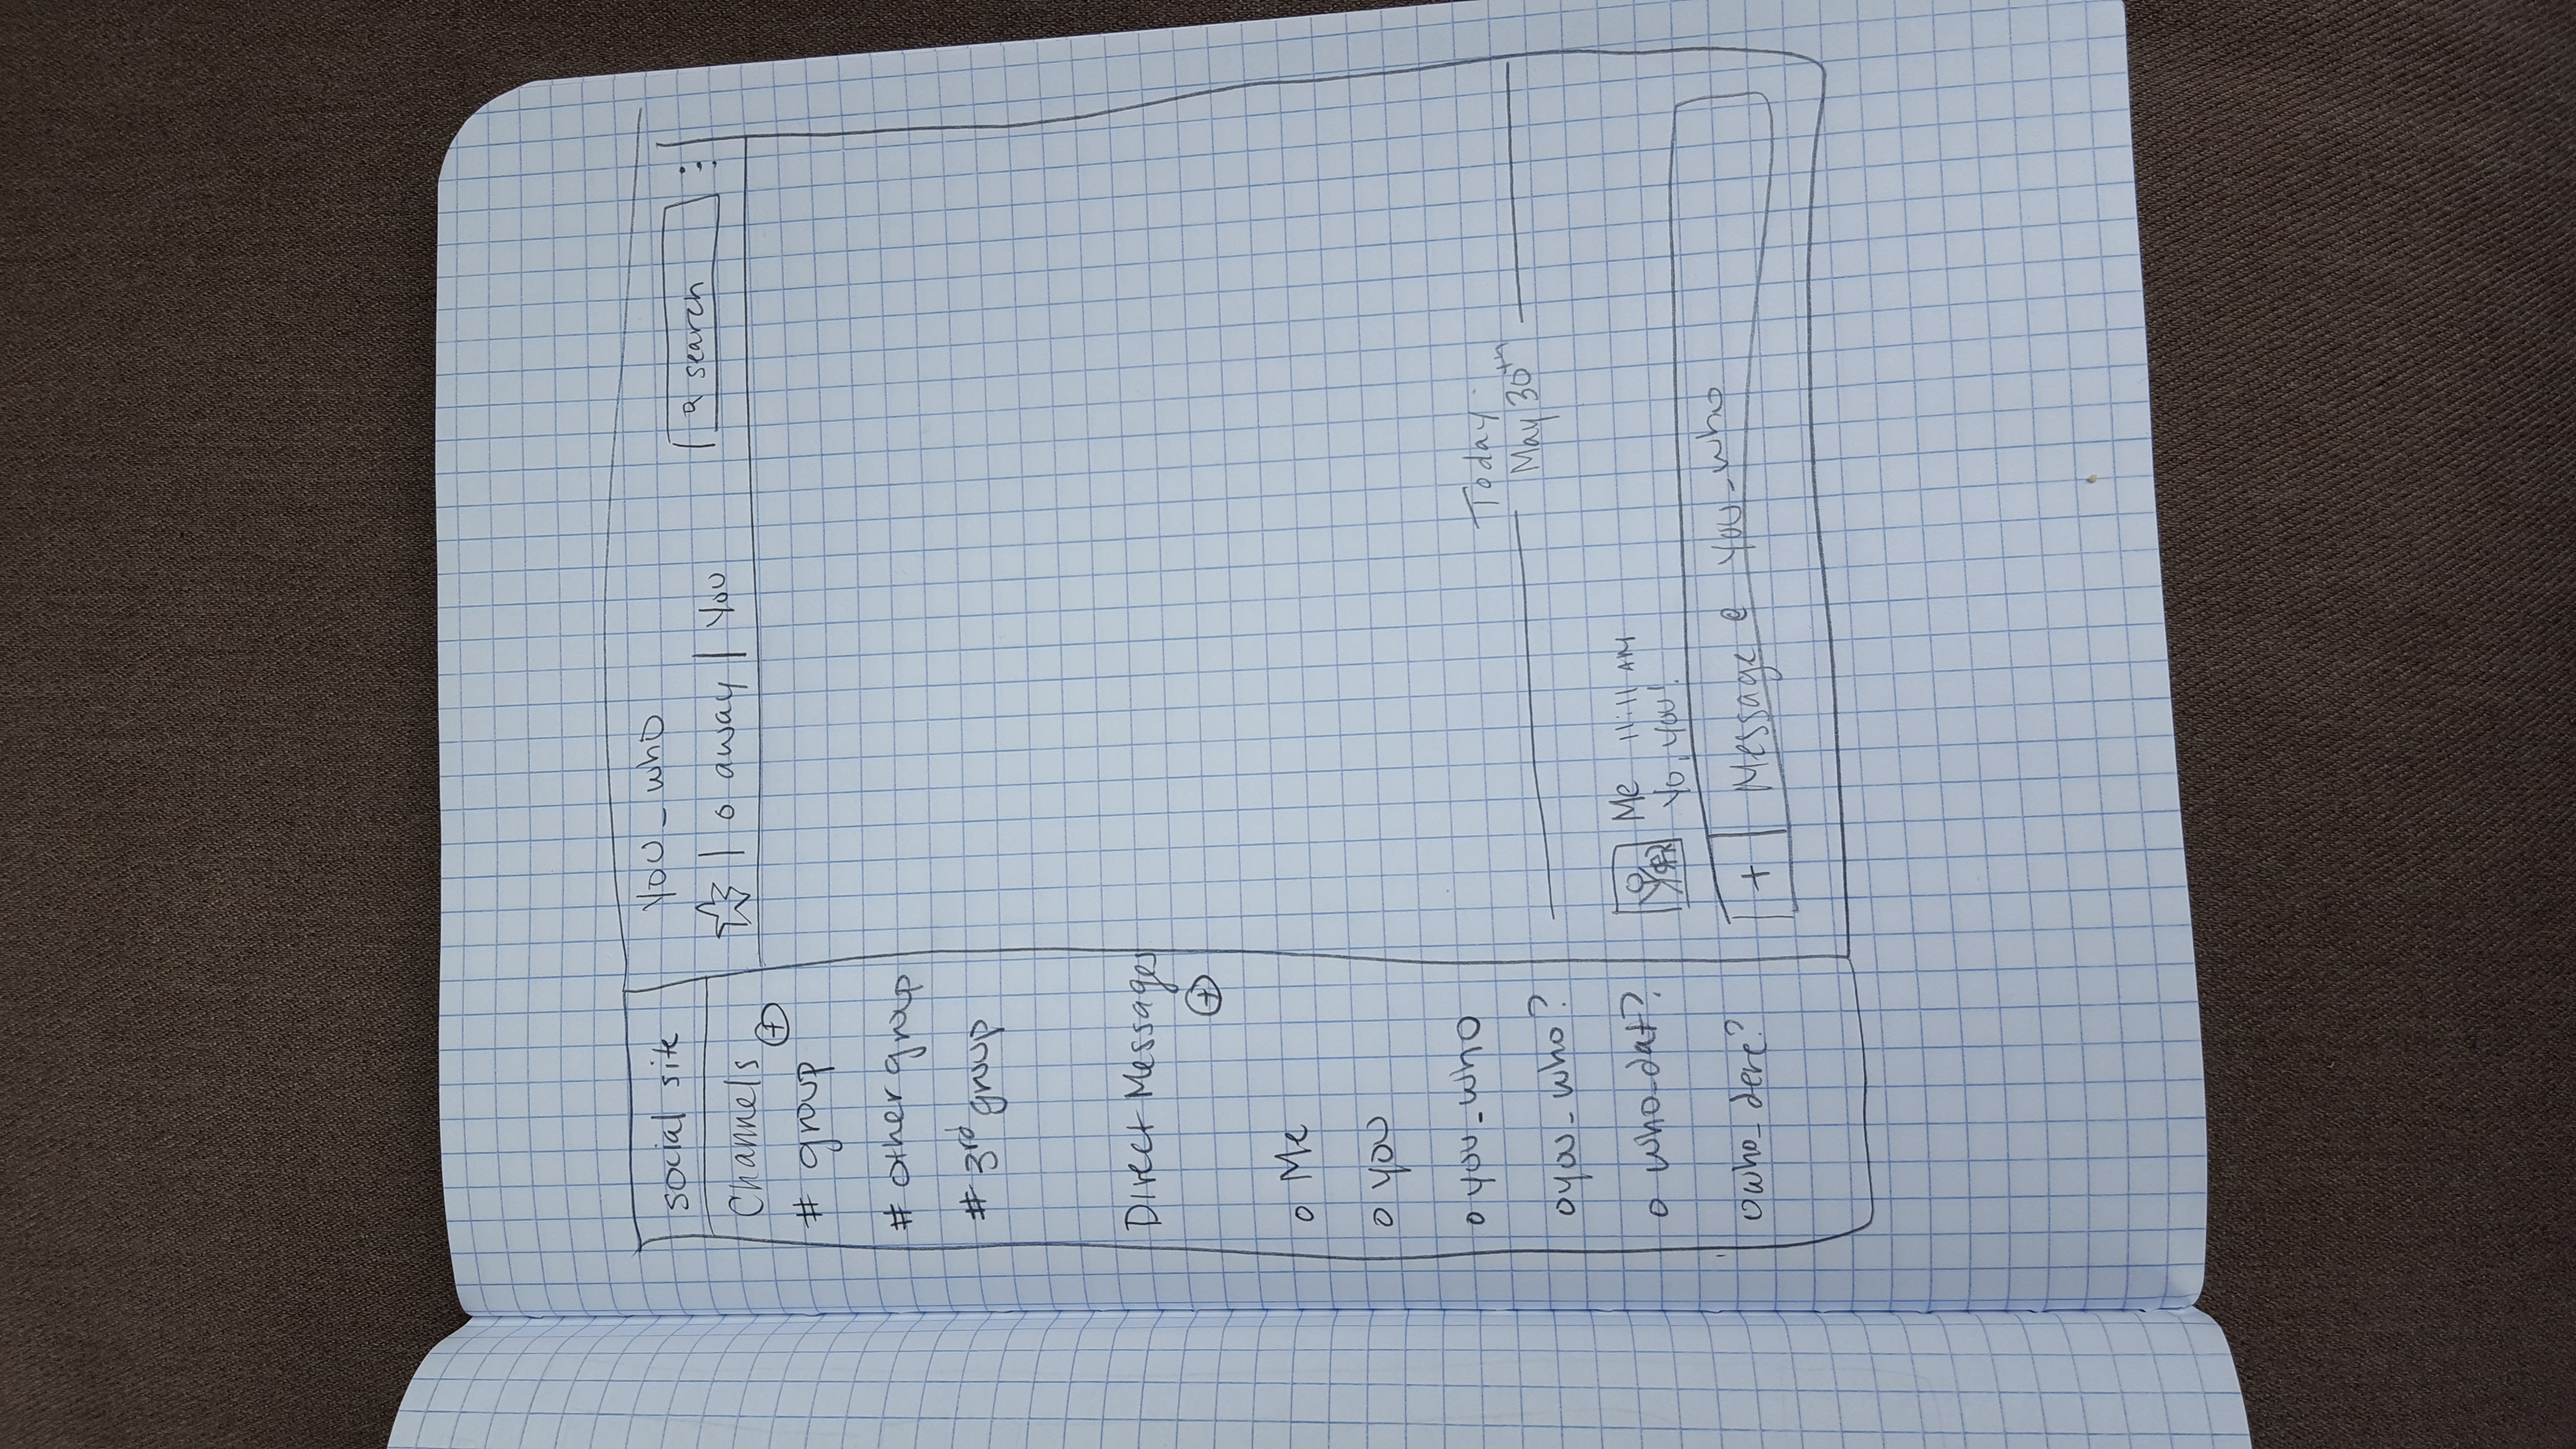 social site
Channels
+
# group
# other group
# 3rd group
Direct Messages
+
o Me
o you
o you_who
o you_who?
o who_dat?
o who_dere?
you_who
| o away | you
search
Today
May 30th
Me 11:11 AM
Yo, you!
+ Message @ you_who